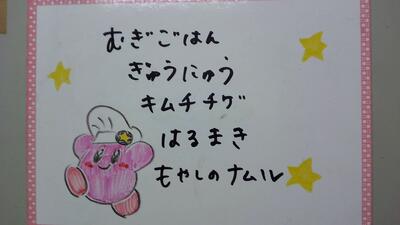 むぎごはん
ぎゅうにゅう
キムチチゲ
はるまき
もやしのナムル